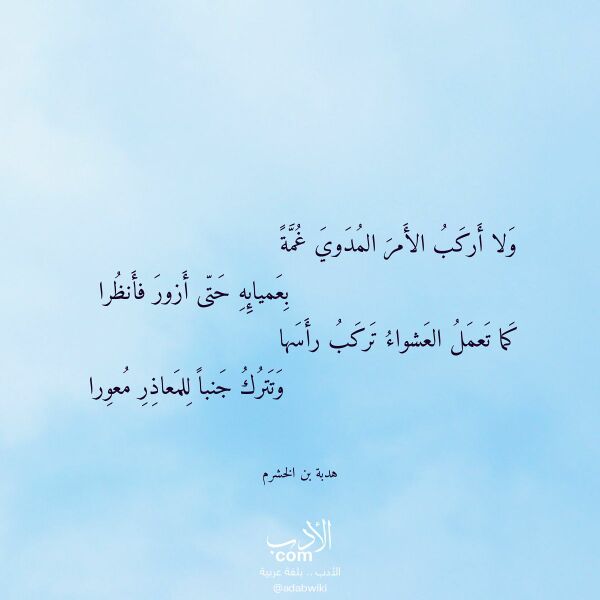 وَلا أَركَبُ الأَمرَ المُدَوِيَ غُمَّةً
بِعَميايِهِ حَتّى أَزورَ فأَنظُرا
كَما تَعمَلُ العَشواءُ تَركَبُ رأَسَها
وَتَترُكُ جَنباً لِلمَعاذِرِ مُعوِرا
هدبة بن الخشرم
الأدب
com
الأدب .. بلغة عربية
@adabwiki